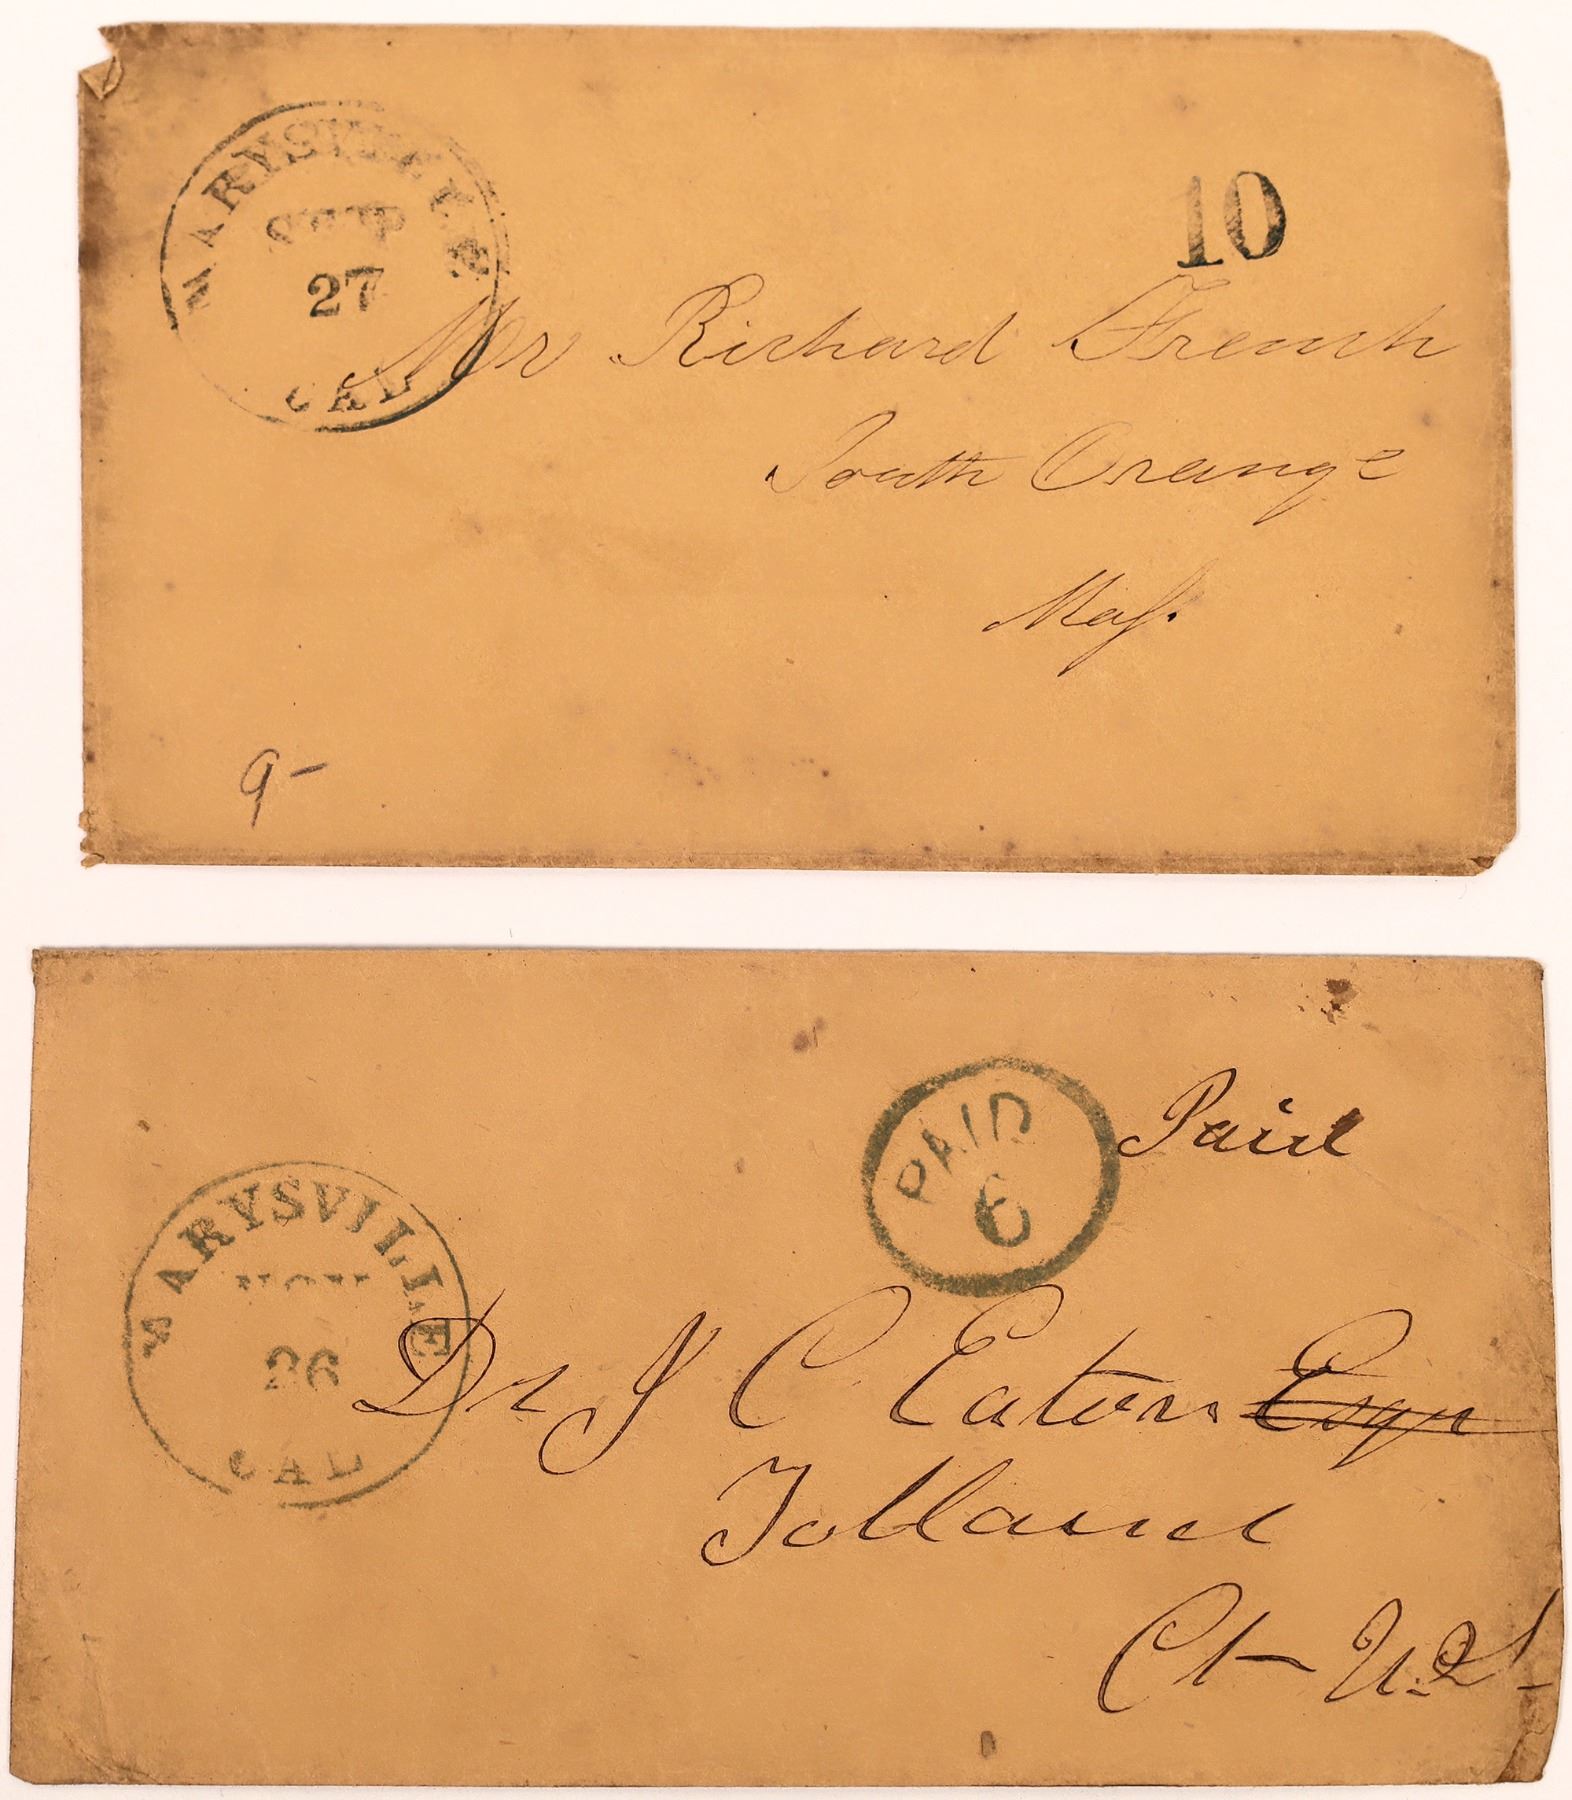 MARYSVILLE
SEP
27
CAL
10
Mr Richard French
South Orange
Mass.
9-
PAID
6
Paid
MARYSVILLE
NOV
26
CAL
Dr J C Eaton Esqr
Tolland
Ct- U.S.